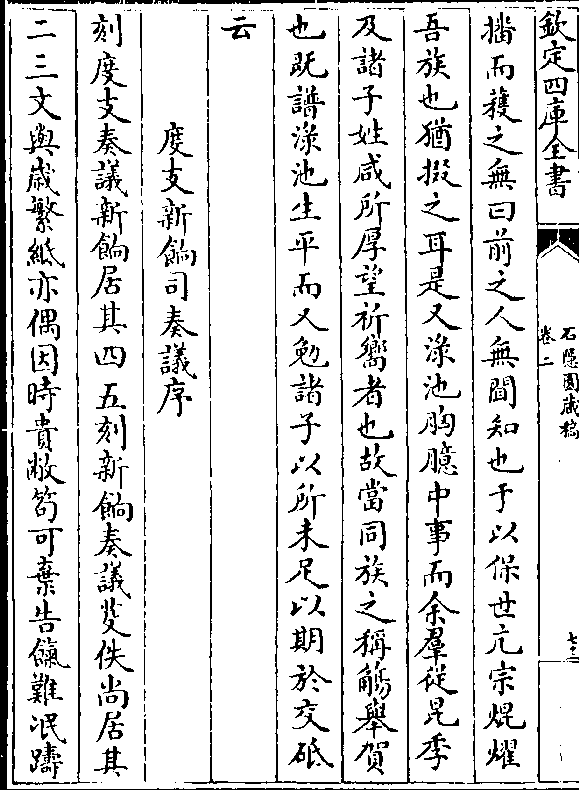 欽定四庫全書
石隱園藏稿
卷二
七十三
播而穫之無曰前之人無聞知也于以保世亢宗焜燿
吾族也猶掇之耳是又淥池胸臆中事而余羣從昆季
及諸子姓咸所厚望祈嚮者也故當同族之稱觴舉賀
也既譜淥池生平而又勉諸子以所未足以期於交砥
云
度支新餉司奏議序
刻度支奏議新餉居其四五刻新餉奏議芟佚尚居其
二三文與歲繁紙亦偶因時貴敝笱可棄告饟難泯躊